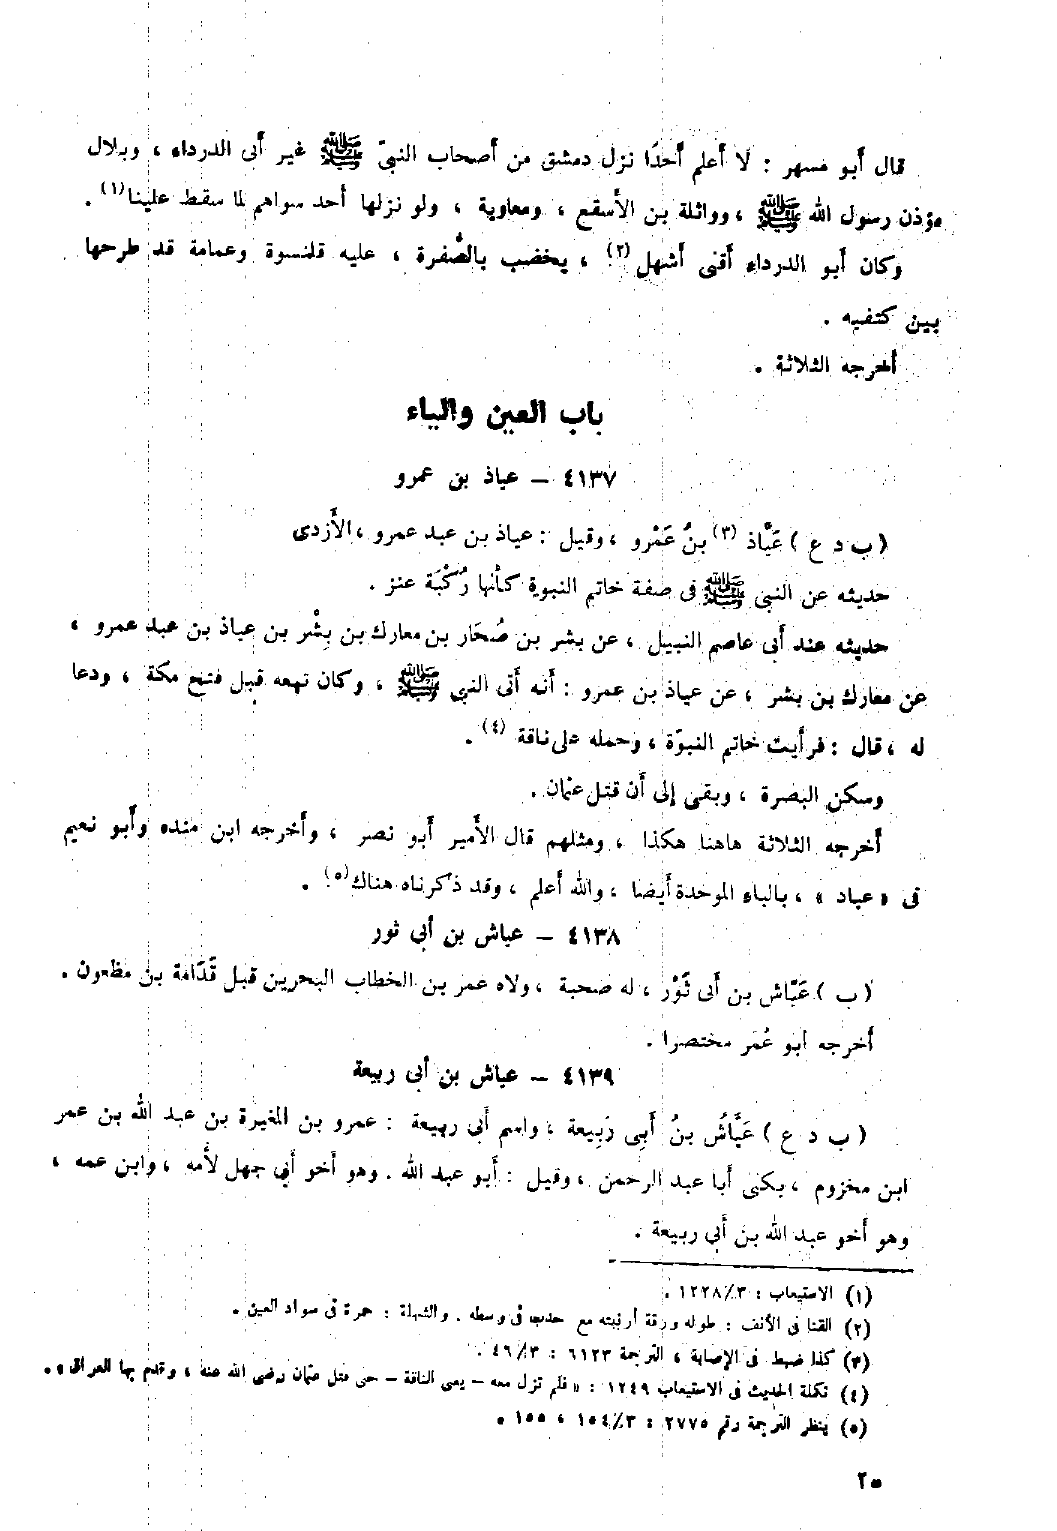 قال أبو مسهر : لا أعلم أحدًا نزل دمشق من أصحاب النبيّ ﷺ غير أبى الدرداء ، وبلال
مؤذن رسول الله ﷺ ، وواثلة بن الأسقع ، ومعاوية ، ولو نزلها أحد سواهم لما سقط علينا(١) .
وكان أبو الدرداء أقنى أشهل(٢) ، يخضب بالصُّفرة ، عليه قلنسوة وعمامة قد طرحها
بين كتفيه .
أخرجه الثلاثة .
باب العين والياء
٤١٣٧ – عياذ بن عمرو
( ب د ع ) عَيَّاذ (٣) بنُ عَمْرو ، وقيل : عياذ بن عبد عمرو ، الأَزدى
حديثه عن النبى ﷺ فى صفة خاتم النبوة كأنها رُكْبَة عنز .
حديثه عند أبى عاصم النبيل ، عن بشر بن صُحَار بن معارك بن بِشْر بن عياذ بن عبد عمرو ،
عن معارك بن بشر ، عن عياذ بن عمرو : أنه أتى النبى ﷺ ، وكان تبعه قبل فتح مكة ، ودعا
له ، قال : فرأيت خاتم النبوّة ، وحمله على ناقة (٤) .
وسكن البصرة ، وبقى إلى أن قتل عثمان .
أخرجه الثلاثة هاهنا هكذا ، ومثلهم قال الأمير أبو نصر ، وأخرجه ابن منده وأبو نعيم
فى « عباد » ، بالباء الموحدة أيضا ، والله أعلم ، وقد ذكرناه هناك(٥) .
٤١٣٨ – عياش بن أبي ثور
( ب ) عَيَّاش بن أبى ثَوْر ، له صحبة ، ولاه عمر بن الخطاب البحرين قبل قُدَامة بن مظعون .
أخرجه أبو عُمَر مختصرا .
٤١٣٩ – عياش بن أبى ربيعة
( ب د ع ) عَيَّاشُ بنُ أَبِى رَبِيعة ، واسم أبى ربيعة : عمرو بن المغيرة بن عبد الله بن عمر
ابن مخزوم ، يكنى أبا عبد الرحمن ، وقيل : أبو عبد الله . وهو أخو أبي جهل لأمه ، وابن عمه ،
وهو أخو عبد الله بن أبي ربيعة .
(١) الاستيعاب : ٣/ ١٢٢٨ .
(٢) القنا فى الأنف : طوله ورقة أرنبته مع حدب فى وسطه . والشهلة : حمرة فى سواد العين .
(٣) كذا ضبط فى الإصابة ، الترجمة ٦١٢٣ : ٣/ ٤٦ .
(٤) تكملة الحديث فى الاستيعاب ١٢٤٩ : « فلم تزل معه – يعنى الناقة – حتى قتل عثمان رضى الله عنه ، وقدم بها العراق » .
(٥) ينظر الترجمة رقم ٢٧٧٥ : ٣/ ١٥٤ ، ١٥٥ .
٢٥